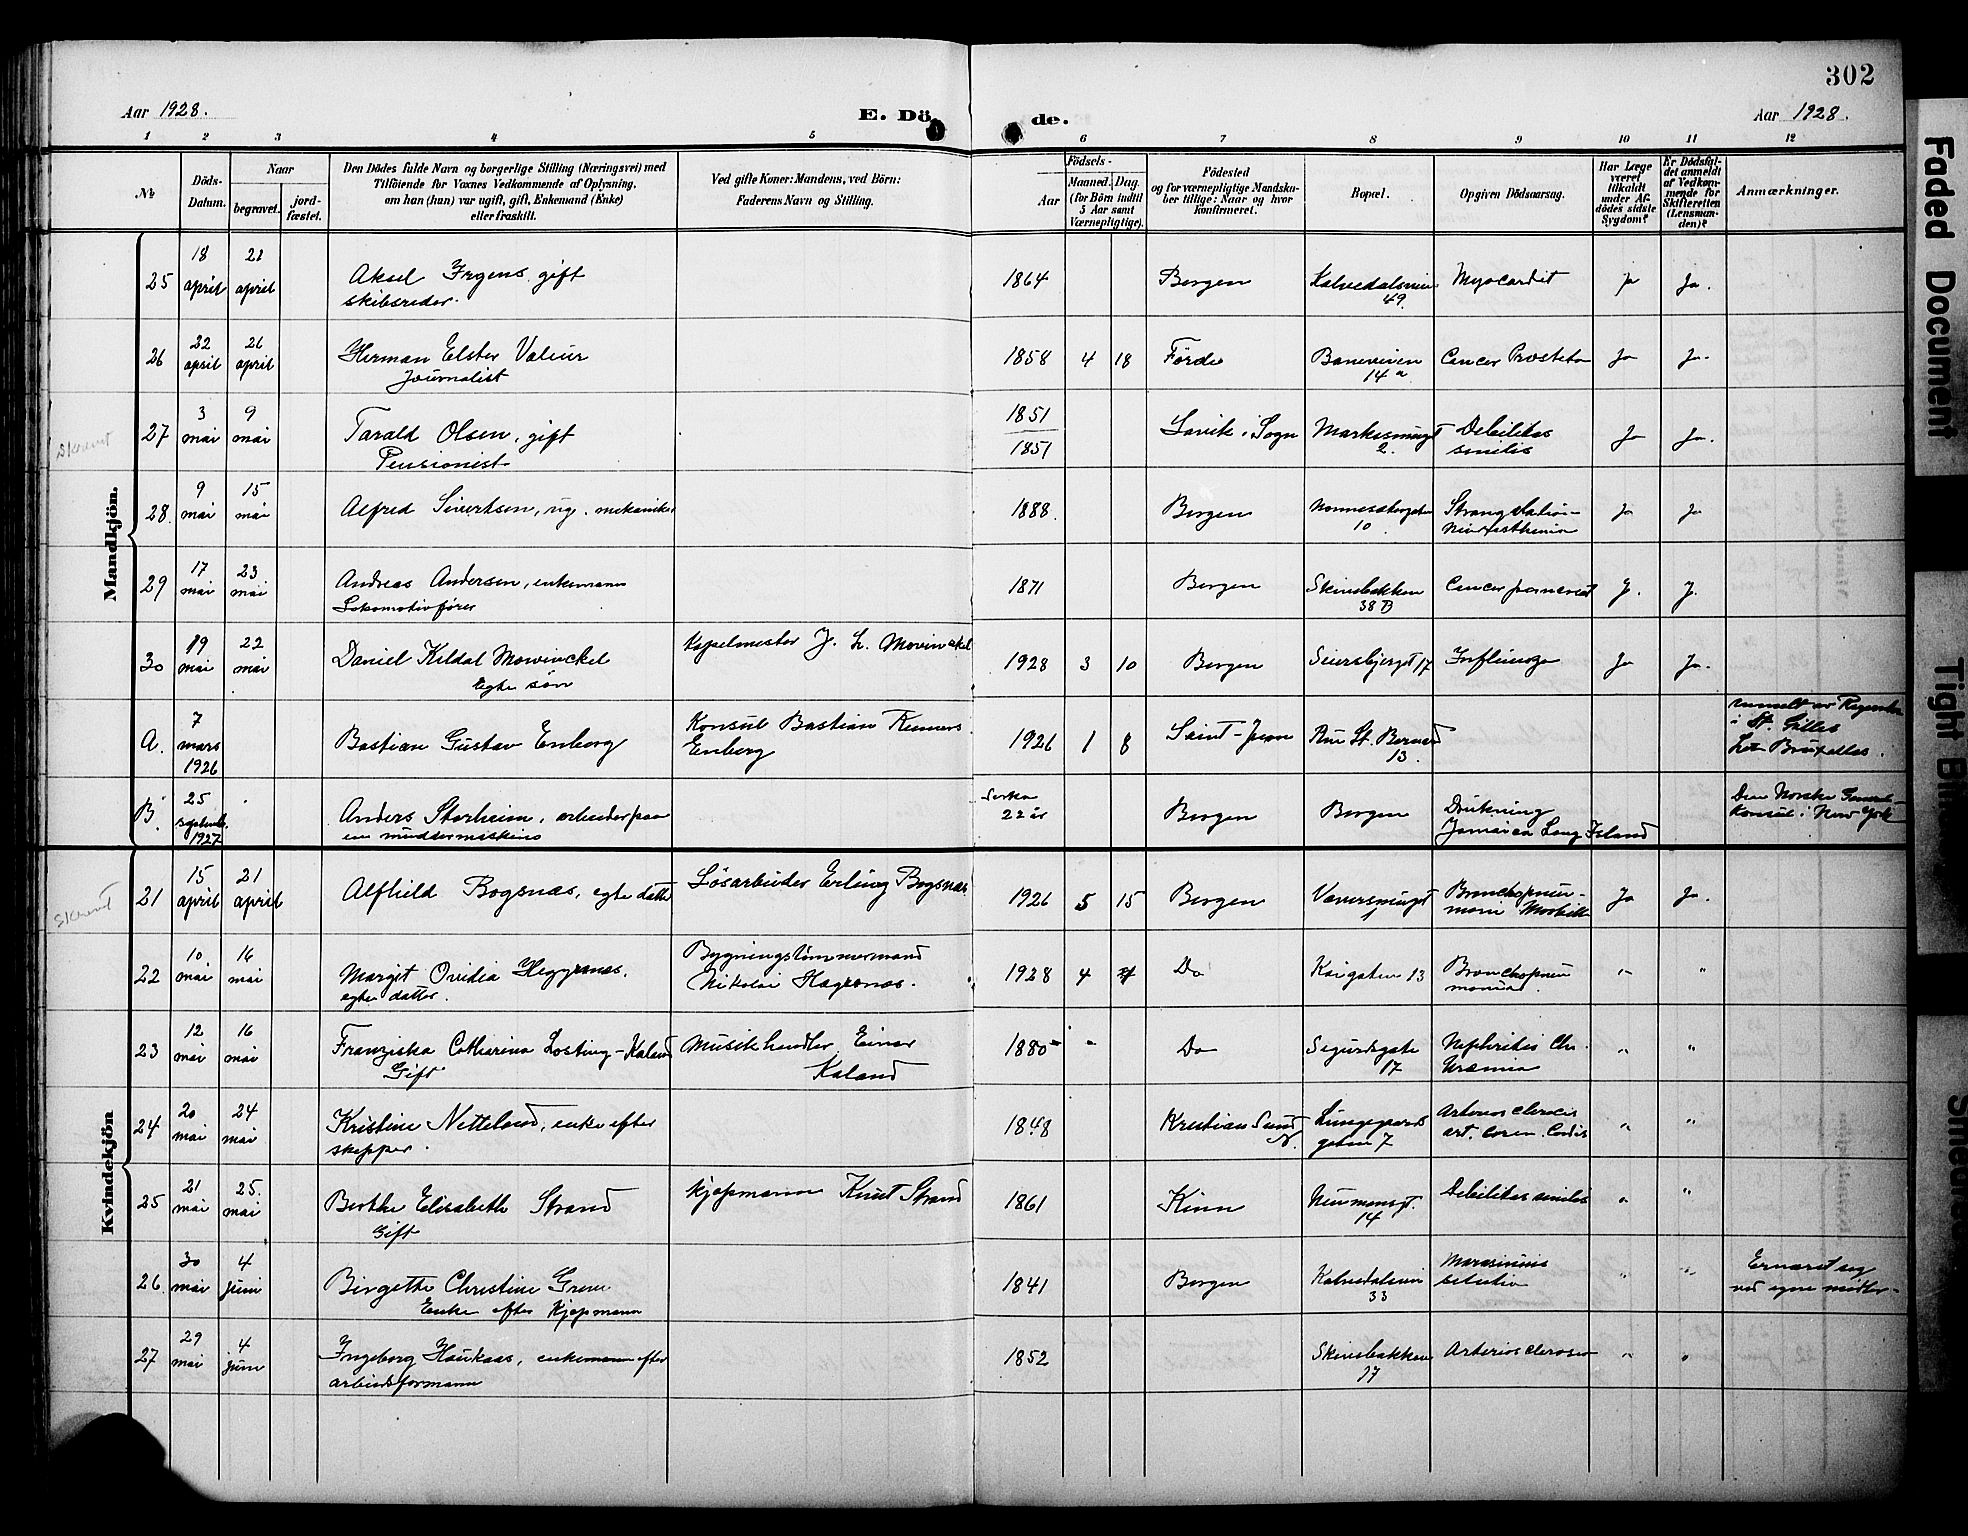 302
Aar 1928.
E. Dö de.
Aar 1928.
1 2 3 4 5 6 7 8 9 10 11 12
№
Döds-
Datum.
Naar
begravet.
jord-
fæstet.
Den Dödes fulde Navn og borgerlige Stilling (Næringsvei) med
Tilföiende for Voxnes Vedkommende af Oplysning,
om han (hun) var ugift, gift, Enkemand (Enke)
eller fraskilt.
Ved gifte Koner: Mandens, ved Börn:
Faderens Navn og Stilling.
Födsels-
Aar
Maaned. Dag.
(for Börn indtil
5 Aar samt
Værnepligtige).
Födested
og for værnepligtige Mandska-
ber tillige: Naar og hvor
konfirmeret.
Bopæl.
Opgiven Dödsaarsag.
Har Læge
været
tilkaldt
under Af-
dödes sidste
Sygdom?
Er Dödsfal-
det anmeldt
af Vedkom-
mende for
Skifteretten
(Lensman-
den)?
Anmærkninger.
Mandkjön.
25 18 april 21 april Aksel Irgens gift
skibsreder. 1864 Bergen Kalvedalsveien 49. Myocardit ja Ja.
26 22 april 26 april Herman Elster Valeur
Journalist 1858 4 18 Førde Baneveien 14 a Cancer Prostata Ja Ja.
27 3 mai 9 mai Tarald Olsen, gift
Pensionist 1851
1851 Lavik i Sogn Markusmugt 2. Debilitas
senilis Ja Ja.
28. 9 mai 15 mai Alfred Sivertsen, ug. mekaniker 1888. Bergen Nonnesætergaten 10 Strangulation-
Neurasthenia Ja Ja
29 17 mai 23 mai Andreas Andersen, enkemann
Lokomotivfører 1871 Bergen Skivebakken 38 B Cancer J. J.
30 19 mai 22 mai Daniel Kildal Mowinckel
Egte søn Kapelmester J. L. Mowinckel 1928 3 10 Bergen Seiersbjergt 17 Influenza Ja Ja.
A. 7 mars 1926 Bastian Gustav Enberg Konsul Bastian
Enberg 1926 1 8 Saint- Rue St. Bernard 13. i St. Gilles
Bruxelles.
B. 25 septemb. 1927 Anders Storheim, arbeider paa
en muddermaskine 22 år Bergen Bergen Drukning
Jamaica Long Island Den Norske General-
Konsul i New York
Kvindekjön
Skrevet
21 15 april 21 april Alfhild Bogsnæs, egte datter Løsarbeider Erling Bogsnæs 1926 5 15 Bergen Bergen Bronchopneu-
moni Morbilli Ja Ja.
22 10 mai 16 mai Margit Ovidia Heggernæs.
egte datter. Bygningstømmermand
Nikolai Hægernæs. 1928 4 Do Kaigaten 13 Bronchopneu
monia. " "
23 12 mai 16 mai Franziska Catharina Losting-Kaland
Gift Musikhandler Einar
Kaland 1880 " Do Sigurdsgate 17 Nephritis Chr.
Uræmia " "
24 20 mai 24 mai Kristine Netteland, enke efter
skipper. 1848 Kristian Sund N. Lungegaards
gaten 7 Arteriosclerosis
art. coron. Cordis " "
25 21 mai 25. mai Berthe Elisabeth Strand
Gift Kjøpmann Knut Strand 1861 Kinn Neumansgt. 14 Debilitas senilis " "
26 30 mai 4 juni Birgitte Christine
Enke efter Kjøpmann 1841 Bergen Kalvedalsveien 33 Marasmus " " Ernæret sig
ved egne midler-
27 29 mai 4 juni Ingeborg Haukaas, enkemann efter
arbeidsformann 1852 Skivebakken 17 Arteriosclerose " "
Faded Document
Tight Bin